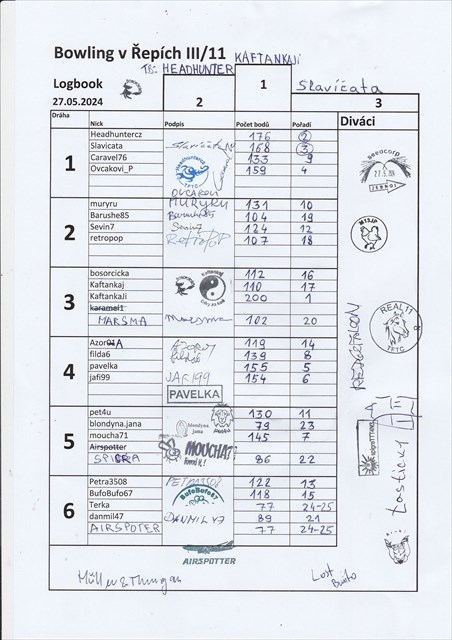 Bowling v Řepích III/11
TB: HEADHUNTER
KAFTANKAJI
Logbook
1
Slavíčata
27.05.2024
2
3
Dráha Nick Podpis Počet bodů Pořadí Diváci
1
Headhuntercz 176 2
Slavicata Slavíčata 168 3
Caravel76 133 9
Ovcakovi_P OVCAKOVI 159 4
2
muryru MURYRU 131 10
Barushe85 Barushe85 104 19
Sevin7 Sevin7 124 12
retropop RETROPOP 107 18
3
bosorcicka 112 16
Kaftankaj 110 17
KaftankaJI 200 1
karamel1
MARSMA Marsma 102 20
4
Azor01A 119 14
filda6 filda6 139 8
pavelka 155 5
jafi99 JAFI99 154 6
PAVELKA
5
pet4u 130 11
blondyna.jana blondyna jana 79 23
moucha71 MOUCHA71 145 7
Airspotter
SPIRRA 86 22
6
Petra3508 122 13
BufoBufo67 BufoBufo67 118 15
Terka 77 24-25
danmil47 DANMIL47 89 21
AIRSPOTER 77 24-25
AIRSPOTTER
seedcorp
REAL11
TFTC
Losticky
Lost